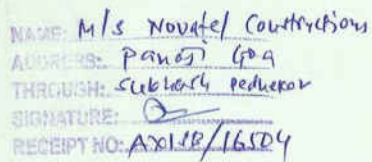 NAME: M/s Novatel Constructions
ADDRESS: Panaji Goa
THROUGH: Subhash Pednekar
SIGNATURE:
RECEIPT NO: AXISB/16504